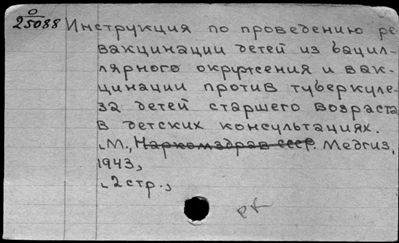 О
25088
Инструкция по проведению ре
вакцинации детей из бацил-
лярного окружения и вак-
цинации против туберкуле-
за детей старшего возраста
в детских консультациях.
М., Наркомздрав СССР. Медгиз,
1943,
2 стр.,